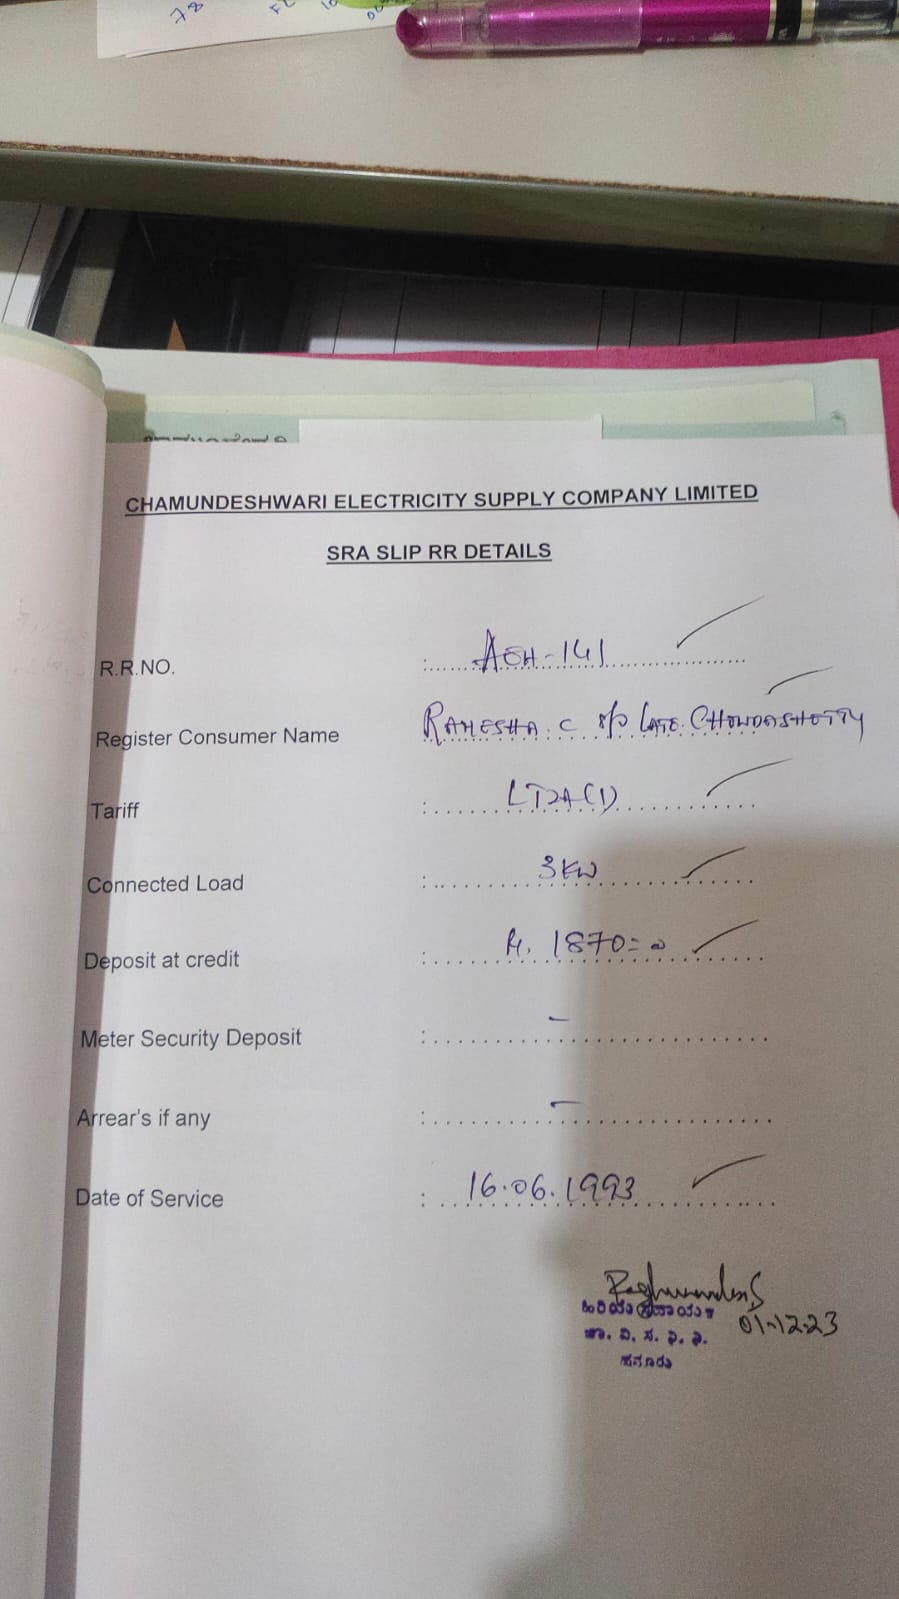 78
CHAMUNDESHWARI ELECTRICITY SUPPLY COMPANY LIMITED
SRA SLIP RR DETAILS
R.R.NO. : AEH-141
Register Consumer Name RAMESHA. C S/o LATE. CHOWDASHETTY
Tariff : LT2A(1)
Connected Load : 3KW
Deposit at credit : Rs. 1870=00
Meter Security Deposit : –
Arrear's if any : –
Date of Service : 16.06.1993
ಹಿರಿಯ ಸಹಾಯಕ
01-12-23
ಚಾ. ವಿ. ಸ. ನಿ. ನಿ.
ಹನೂರು